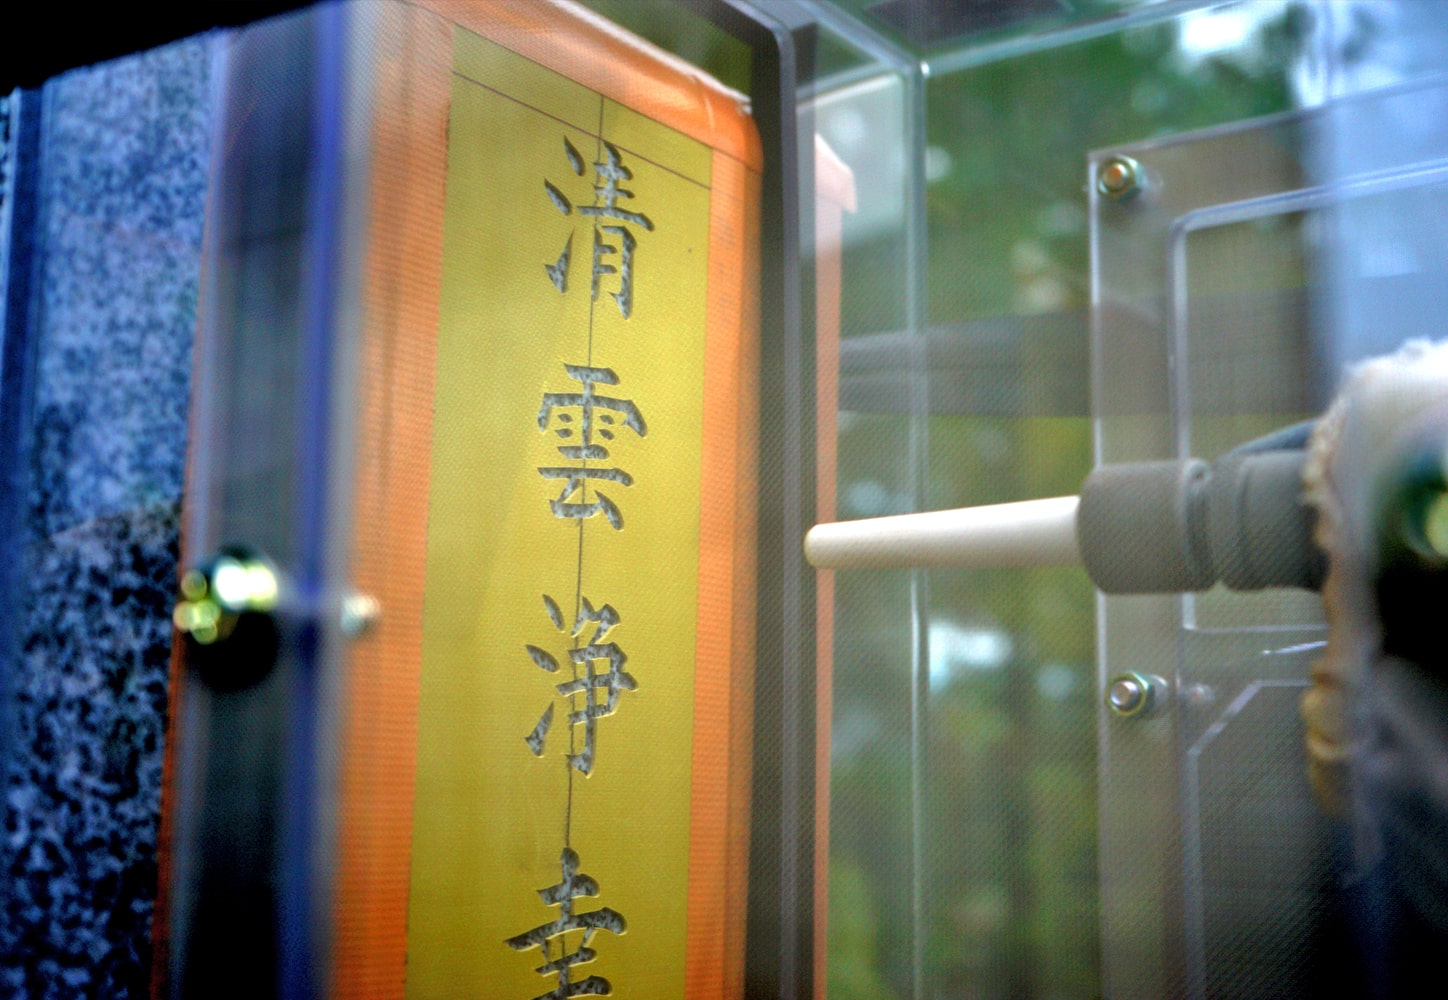 清雲浄幸